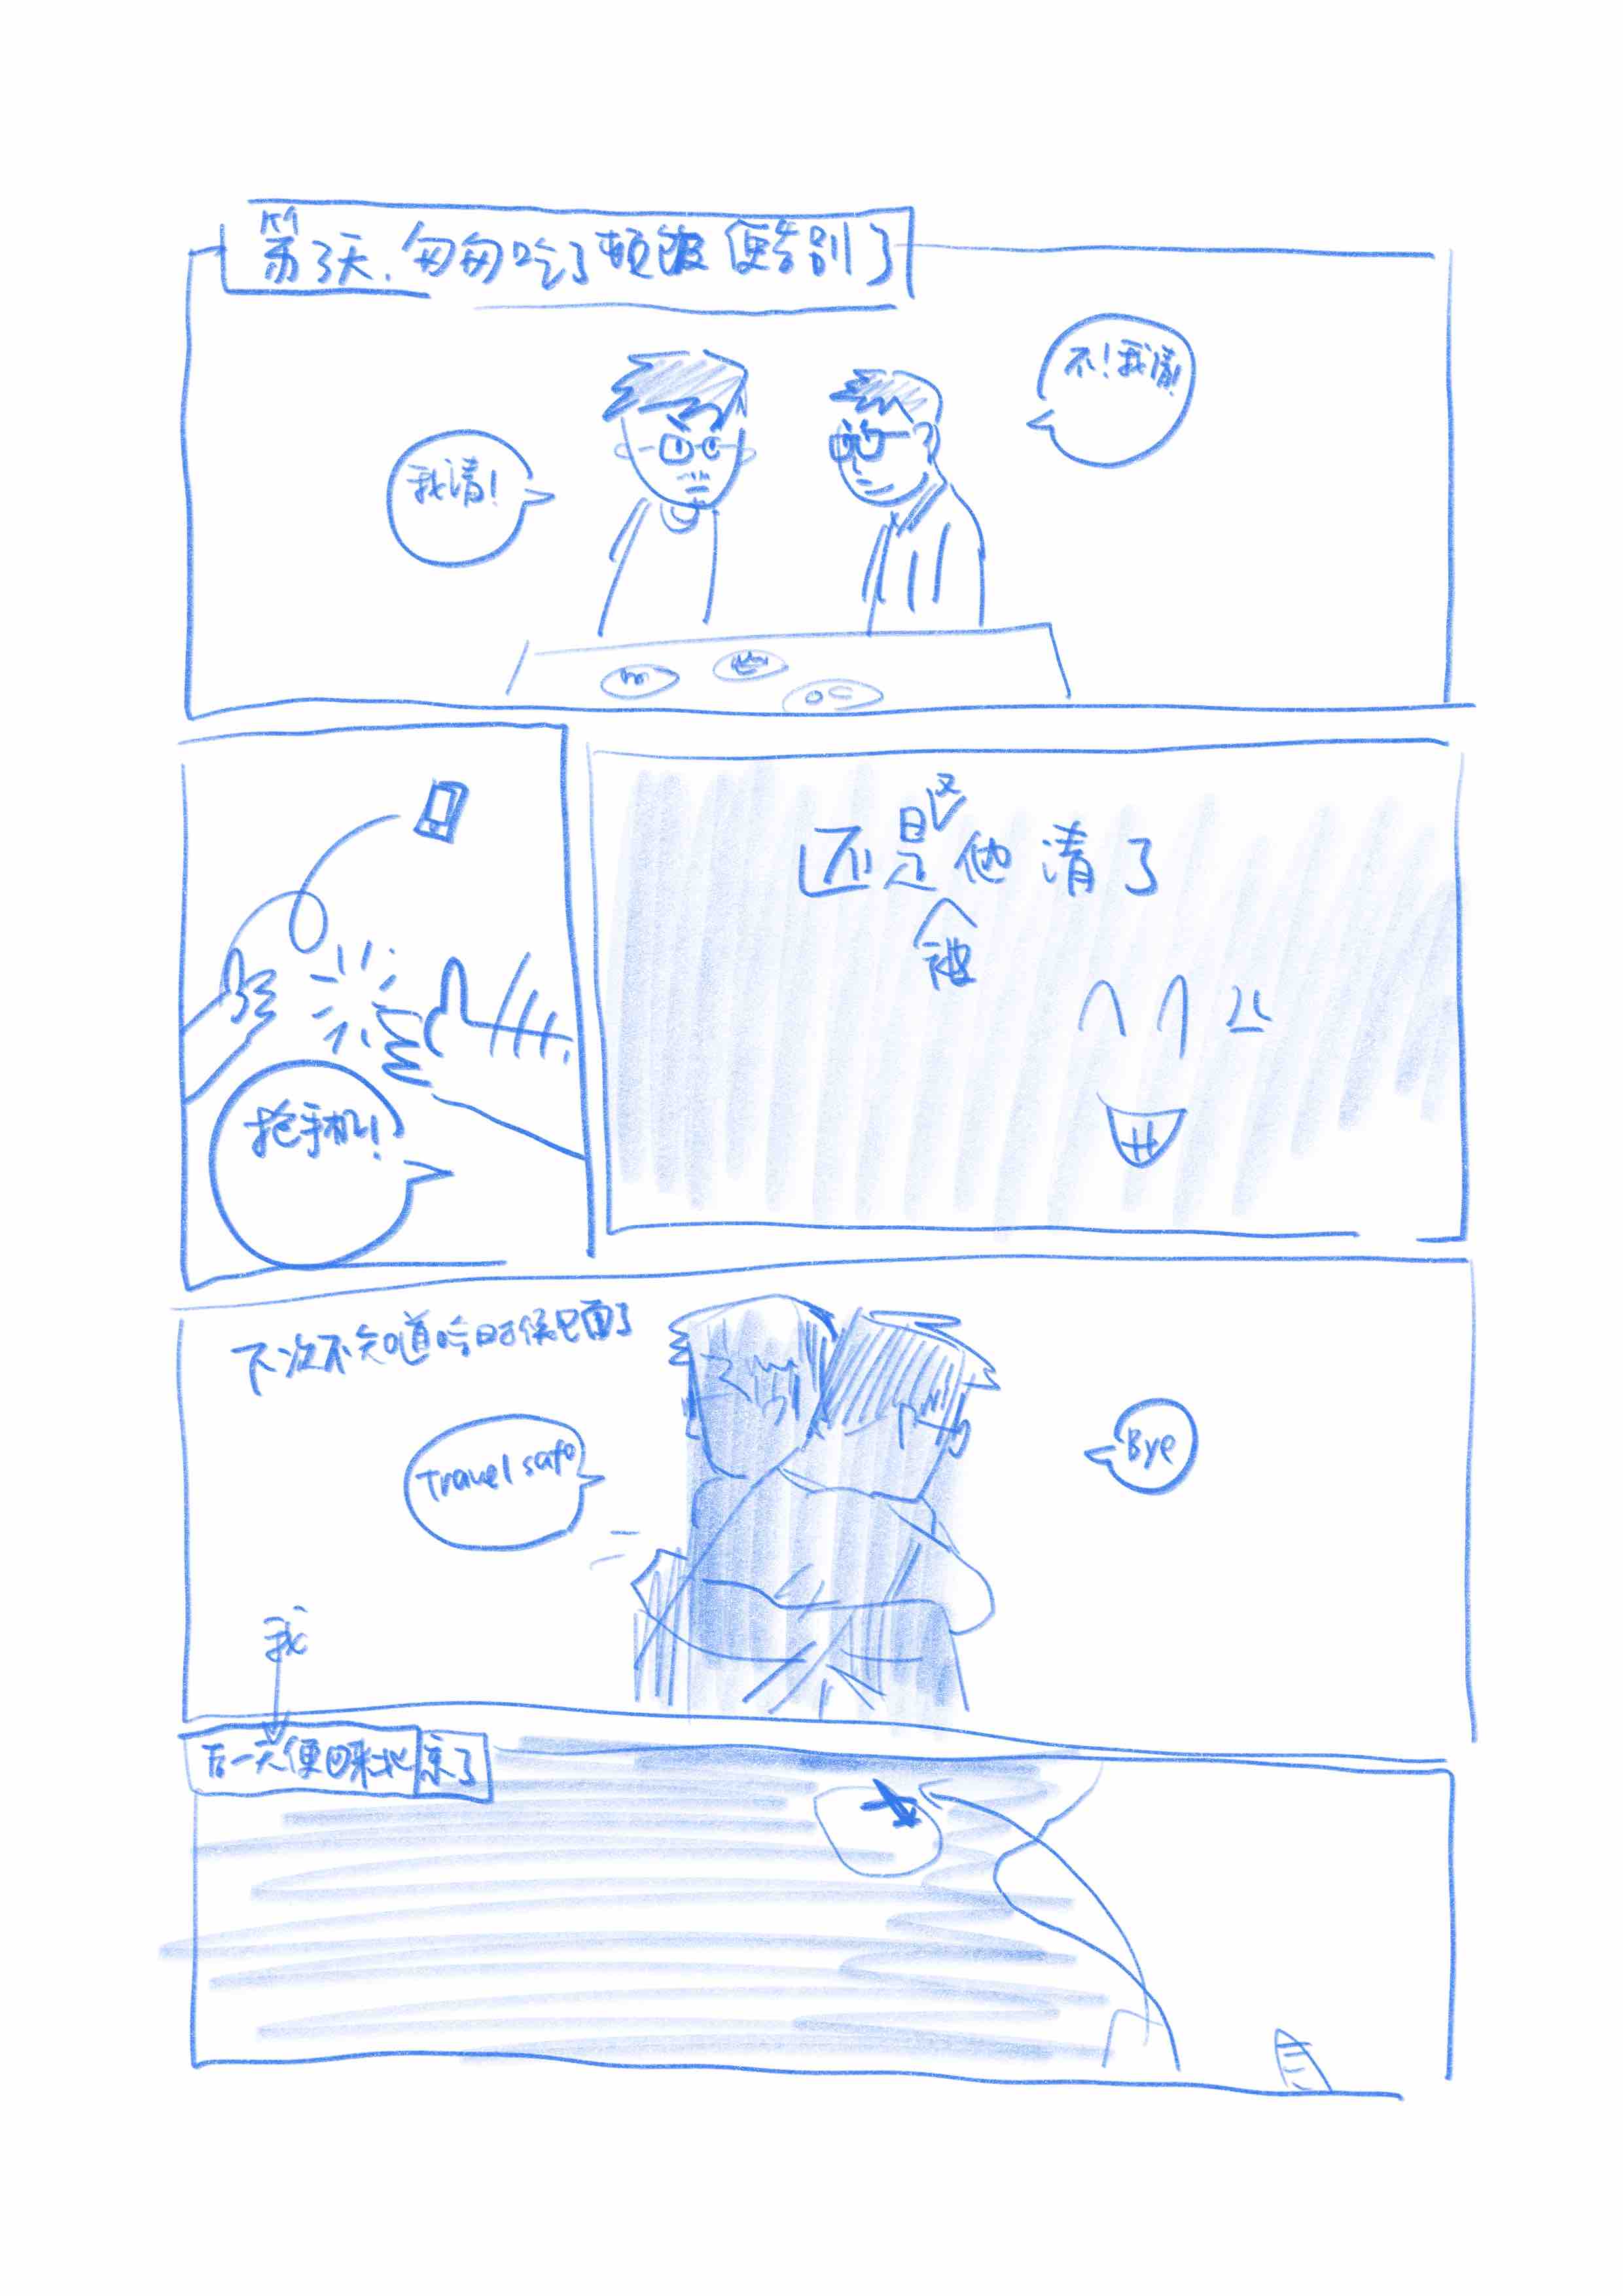 第3天.匆匆吃了顿饭便告别了
我请!
不!我请!
抢手机!
还是又被他请了
下次不知道啥时候见面了
Travel safe
Bye
我
后一天便回来北京了